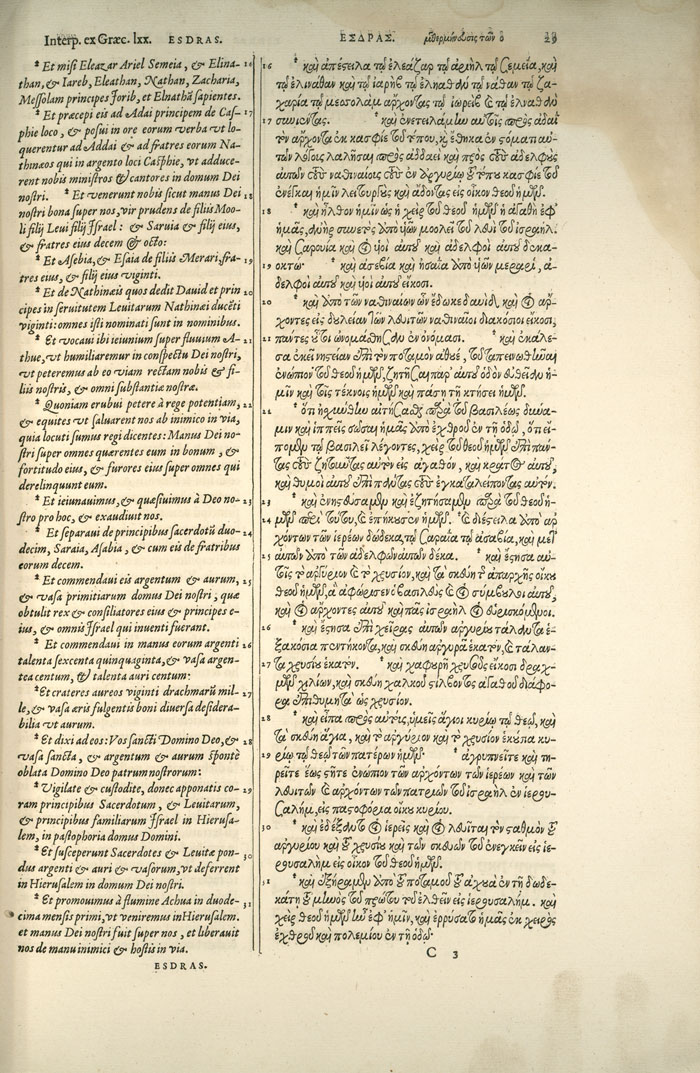 Interp. ex Græc. lxx. ESDRAS.
* Et misi Eleazar Ariel Semeia, & Elina- 16
than, & Iareb, Eleathan, Nathan, Zacharia,
Messolam principes Jorib, et Elnathã sapientes.
* Et præcepi eis ad Adai principem de Cas- 17
phie loco, & posui in ore eorum verba vt lo-
querentur ad Addai & ad fratres eorum Na-
thinæos qui in argento loci Casphie, vt adduce-
rent nobis ministros & cantores in domum Dei
nostri. * Et venerunt nobis sicut manus Dei 18
nostri bona super nos, vir prudens de filiis Moo-
li filij Leui filij Jsrael: & Saruia & filij eius,
& fratres eius decem & octo:
* Et Asebia, & Esaia de filiis Merari, fra- 19
tres eius, & filij eius viginti.
* Et de Nathinæis quos dedit Dauid et prin 20
cipes in seruitutem Leuitarum Nathinæi ducēti
viginti: omnes isti nominati sunt in nominibus.
* Et vocaui ibi ieiunium super fluuium A- 21
thue, vt humiliaremur in conspectu Dei nostri,
vt peteremus ab eo viam rectam nobis & fi-
liis nostris, & omni substantiæ nostræ.
* Quoniam erubui petere à rege potentiam, 22
& equites vt saluarent nos ab inimico in via,
quia locuti sumus regi dicentes: Manus Dei no-
stri super omnes quærentes eum in bonum, &
fortitudo eius, & furores eius super omnes qui
derelinquunt eum.
* Et ieiunauimus, & quæsiuimus à Deo no- 23
stro pro hoc, & exaudiuit nos.
* Et separaui de principibus sacerdotũ duo- 24
decim, Saraia, Asabia, & cum eis de fratribus
eorum decem.
* Et commendaui eis argentum & aurum, 25
& vasa primitiarum domus Dei nostri, quæ
obtulit rex & consiliatores eius & principes e-
ius, & omnis Jsrael qui inuenti fuerant.
* Et commendaui in manus eorum argenti 26
talenta sexcenta quinquaginta, & vasa argen-
tea centum, & talenta auri centum:
* Et crateras aureos viginti drachmarũ mil- 27
le, & vasa æris fulgentis boni diuersa desidera-
bilia vt aurum.
* Et dixi ad eos: Vos sancti Domino Deo, & 28
vasa sancta, & argentum & aurum sponte
oblata Domino Deo patrum nostrorum:
* Vigilate & custodite, donec apponatis co- 29
ram principibus Sacerdotum, & Leuitarum,
& principibus familiarum Jsrael in Hierusa-
lem, in pastophoria domus Domini.
* Et susceperunt Sacerdotes & Leuitæ pon- 30
dus argenti & auri & vasorum, vt deferrent
in Hierusalem in domum Dei nostri.
* Et promouimus à flumine Achua in duode- 31
cima mensis primi, vt veniremus in Hierusalem.
et manus Dei nostri fuit super nos, et liberauit
nos de manu inimici & hostis in via.
ESDRAS.
ΕΣΔΡΑΣ. μεθερμήνευσις τῶν ὁ 29
16 * καὶ ἀπέστειλα τῷ ἐλεάζαρ τῷ ἀριὴλ τῷ σεμεία, καὶ
τῷ ἐλινάθαν καὶ τῷ ἰαρὴβ τῷ ἐληαθὰν τῷ νάθαν τῷ ζα-
χαρία τῷ μεσολὰμ ἄρχοντας τῷ ἰωρεὶβ καὶ τῷ ἐλναθὰν
17 συνιώντας. * καὶ ἐνετειλάμην αὐτοῖς πρὸς ἀδαῒ
τὸν ἄρχοντα ἐν κασφιὲ τοῦ τόπου, καὶ ἔθηκα ἐν στόματι αὐ-
τῶν λόγοις λαλῆσαι πρὸς ἀδδαεὶ καὶ πρὸς τοὺς ἀδελφοὺς
αὐτῶν τοὺς ναθιναίους τοὺς ἐν ἀργυρίῳ τοῦ τόπου κασφιὲ τοῦ
ἐνέγκαι ἡμῖν λειτουργοὺς καὶ ἄδοντας εἰς οἶκον θεοῦ ἡμῶν.
18 * καὶ ἦλθον ἡμῖν ὡς ἡ χεὶρ τοῦ θεοῦ ἡμῶν ἡ ἀγαθὴ ἐφ'
ἡμᾶς, ἀνὴρ συνετὸς ἀπὸ υἱῶν μοολεὶ τοῦ λευὶ τοῦ ἰσραήλ.
καὶ σαρουία καὶ οἱ υἱοὶ αὐτοῦ καὶ ἀδελφοὶ αὐτοῦ δεκα-
19 οκτώ· * καὶ ἀσεβία καὶ ἡσαΐα ἀπὸ υἱῶν μεραρὶ, ἀ-
δελφοὶ αὐτοῦ καὶ υἱοὶ αὐτοῦ εἴκοσι.
20 * καὶ ἀπὸ τῶν ναθιναίων ὧν ἔδωκε δαυὶδ, καὶ οἱ ἄρ-
χοντες εἰς δουλείαν τῶν λευιτῶν ναθιναῖοι διακόσιοι εἴκοσι,
21 πάντες οὗτοι ὠνομάσθησαν ἐν ὀνόμασι. * καὶ ἐκάλε-
σα ἐκεῖ νηστείαν ἐπὶ τὸν ποταμὸν ἀθουὲ, τοῦ ταπεινωθῆναι
ἐνώπιον τοῦ θεοῦ ἡμῶν, ζητῆσαι παρ' αὐτοῦ ὁδὸν εὐθεῖαν ἡ-
μῖν καὶ τοῖς τέκνοις ἡμῶν καὶ πάσῃ τῇ κτήσει ἡμῶν.
22 * ὅτι ᾐσχύνθην αἰτήσασθαι παρὰ τοῦ βασιλέως δύνα-
μιν καὶ ἱππεῖς σῶσαι ἡμᾶς ἀπὸ ἐχθροῦ ἐν τῇ ὁδῷ, ὅτι εἴ-
πομεν τῷ βασιλεῖ λέγοντες, χεὶρ τοῦ θεοῦ ἡμῶν ἐπὶ πάν-
τας τοὺς ζητοῦντας αὐτὸν εἰς ἀγαθὸν, καὶ κράτος αὐτοῦ,
καὶ θυμοὶ αὐτοῦ ἐπὶ πάντας τοὺς ἐγκαταλείποντας αὐτόν.
23 * καὶ ἐνηστεύσαμεν καὶ ἐζητήσαμεν παρὰ τοῦ θεοῦ ἡ-
24 μῶν περὶ τούτου, καὶ ἐπήκουσεν ἡμῶν. καὶ διέστειλα ἀπὸ ἀρ
χόντων τῶν ἱερέων δώδεκα, τῷ σαραΐα τῷ ἀσαβία, καὶ μετ'
25 αὐτῶν ἀπὸ τῶν ἀδελφῶν αὐτῶν δέκα. * καὶ ἔστησα αὐ-
τοῖς τὸ ἀργύριον καὶ τὸ χρυσίον, καὶ τὰ σκεύη τῆς ἀπαρχῆς οἴκου
θεοῦ ἡμῶν, ἃ ἀφώρισεν ὁ βασιλεὺς καὶ οἱ σύμβουλοι αὐτοῦ,
καὶ οἱ ἄρχοντες αὐτοῦ καὶ πᾶς ἰσραὴλ οἱ εὑρισκόμενοι.
26 * καὶ ἔστησα ἐπὶ χεῖρας αὐτῶν ἀργυρίου τάλαντα ἑ-
ξακόσια πεντήκοντα, καὶ σκεύη ἀργυρᾶ ἑκατὸν, καὶ τάλαν-
27 τα χρυσίου ἑκατόν. * καὶ χαφουρὴ χρυσοῦς εἴκοσι δραχ-
μῶν χιλίων, καὶ σκεύη χαλκοῦ στίλβοντος ἀγαθοῦ διάφο-
ρα ἐπιθυμητὰ ὡς χρυσίον.
28 * καὶ εἶπα πρὸς αὐτοὺς, ὑμεῖς ἅγιοι κυρίῳ τῷ θεῷ, καὶ
τὰ σκεύη ἅγια, καὶ τὸ ἀργύριον καὶ τὸ χρυσίον ἑκούσια κυ-
29 ρίῳ τῷ θεῷ τῶν πατέρων ἡμῶν· * ἀγρυπνεῖτε καὶ τη-
ρεῖτε ἕως στῆτε ἐνώπιον τῶν ἀρχόντων τῶν ἱερέων καὶ τῶν
λευιτῶν καὶ ἀρχόντων τῶν πατριῶν τοῦ ἰσραὴλ ἐν ἱερου-
σαλὴμ, εἰς παστοφόρια οἴκου κυρίου.
30 * καὶ ἐδέξαντο οἱ ἱερεῖς καὶ οἱ λευῖται τὸν σταθμὸν τοῦ
ἀργυρίου καὶ τοῦ χρυσίου καὶ τῶν σκευῶν τοῦ ἐνεγκεῖν εἰς ἱε-
ρουσαλὴμ εἰς οἶκον τοῦ θεοῦ ἡμῶν.
31 * καὶ ἐξῄραμεν ἀπὸ τοῦ ποταμοῦ τοῦ ἀχουὰ ἐν τῇ δωδε-
κάτῃ τοῦ μηνὸς τοῦ πρώτου τοῦ ἐλθεῖν εἰς ἱερουσαλήμ. καὶ
χεὶρ θεοῦ ἡμῶν ἦν ἐφ' ἡμῖν, καὶ ἐρρύσατο ἡμᾶς ἐκ χειρὸς
ἐχθροῦ καὶ πολεμίου ἐν τῇ ὁδῷ·
C 3